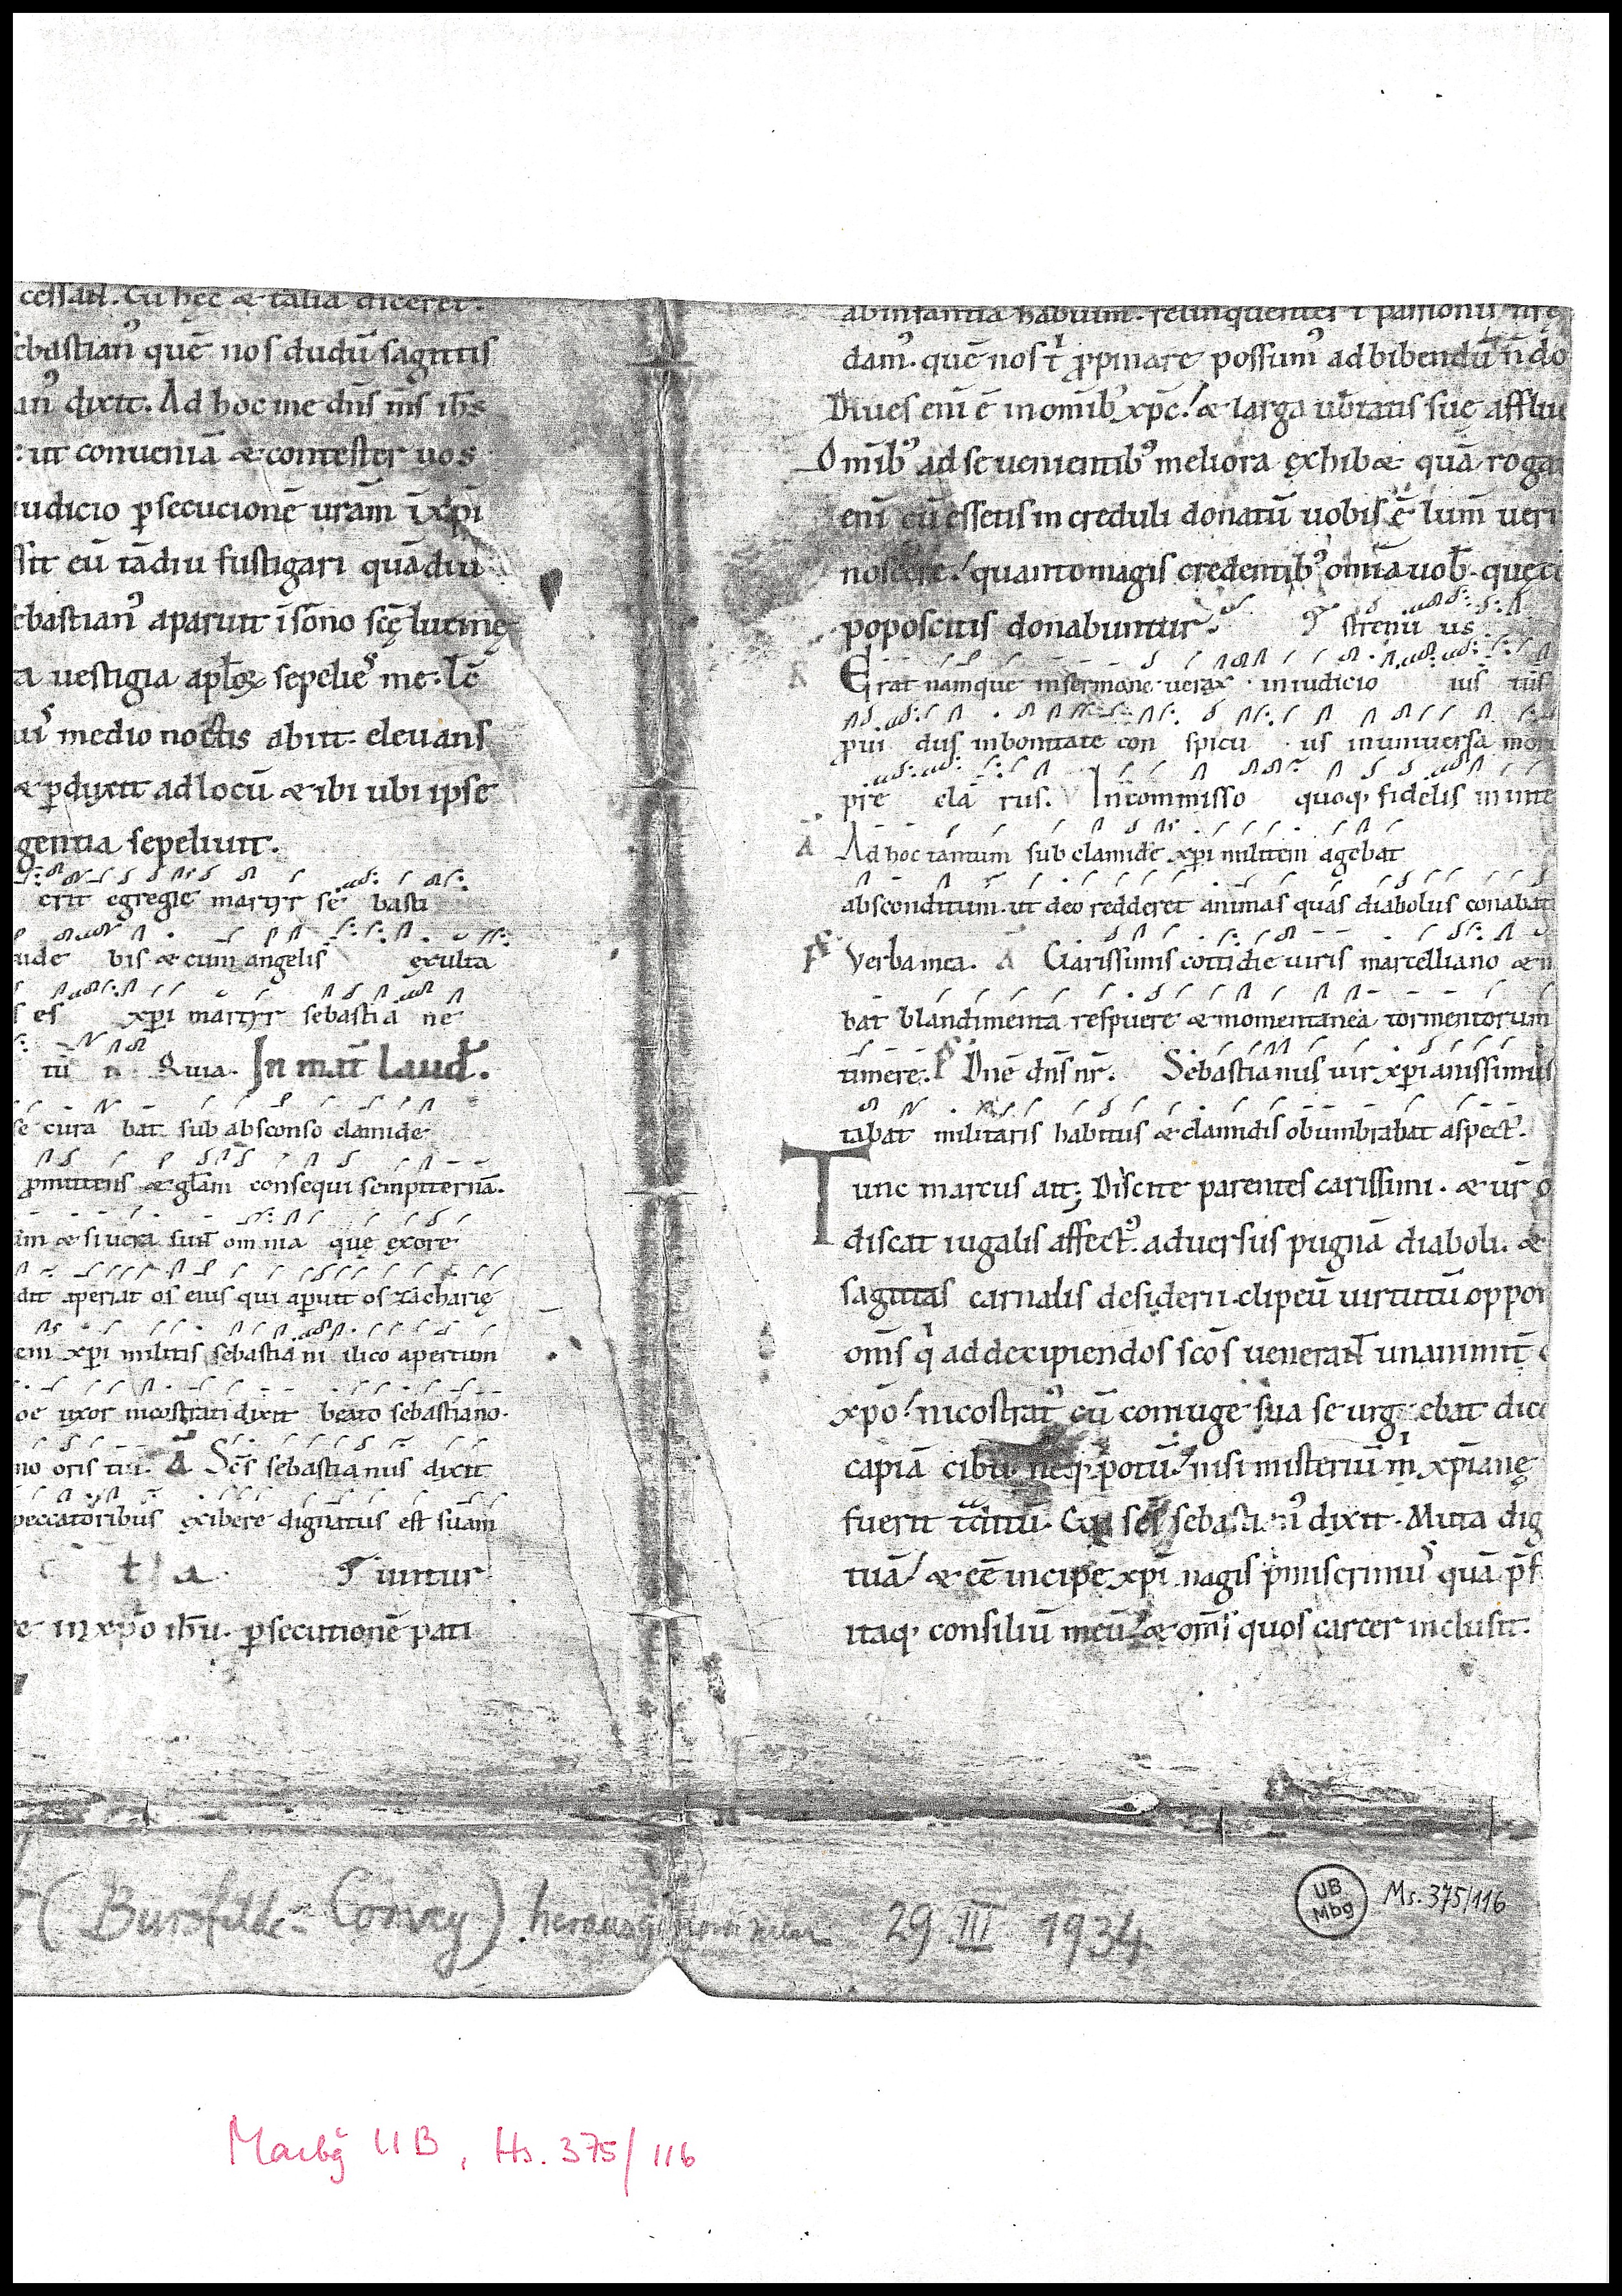 cessari. Cū hęc & talia diceret.
ebastian᾽ quē nos dudū sagittis
an᾽ dixit. Ad hoc me dn̄s m̄s ih̄s
ut conueniā & contester uos
iudicio p̄secucionē ur̄am ī xp̄i
ssit eū tādiu fustigari quādiu
ebastian᾽ aparuit ī sōno scę̄ lucinę
ta uestigia apl̄oꝝ sepelies me. lc̄
medio noctis abiit. eleuans
& pduxit ad locū & ibi ubi ipse
gentia sepeliuit.
erit egregie martyr se basti
bis & cum angelis exulta
es xp̄i martyr sebastia ne
Quia. In mat̄ Laud̄.
se cura bat sub absconso clamide
promittens & gl̄am consequi sempiternā.
am & si uera sunt omnia quę ex ore
dit aperiat os eius qui aperuit os zacharię
em xp̄i militis sebastia ni ilico apertum
oe uxor nicostrati dixit beato sebastiano.
no oris tui. A Sc̄s sebastianus dixit
peccatoribus exibere dignatus est suam
untur
re in xp̄o ih̄u. p̄secutionē pati
ab infantia habuim᾽. relinquentes
dam᾽. quē nos t propinare possum᾽ ad bibendū n̄ do
Diues enī ē in omīb᾽ xp̄c. & larga ub̄tatis suę affluu
Omīb᾽ ad se uenientib᾽ meliora exhib& quā roga
enī cū essetis increduli donatū uobis ē lum̄ ueri
noscere. quanto magis credentib᾽ omīa uob̄. quęcū
poposcitis donabuntur. strenu us
R Erat namque in sermone uerax in iudicio ius tus
prui dus in bonitate con spicu us in uniuersa mor
pre cla rus. V In commisso quoq; fidelis in inte
A Ad hoc tantum sub clamide xp̄i militem agebat
absconditum. ut deo redderet animas quas diabolus conabat
Verba mea. A Clarissimis cottidie uiris marcelliano &
bat blandimenta respuere & momentanea tormentorum
timere. P Dn̄e dn̄s nr̄. Sebastianus uir xp̄ianissimus
tabat militaris habitus & clamidis obumbrabat aspect᾽.
Tunc marcus ait; Discite parentes carissimi. & ur̄
discat iugalis affect᾽. aduersus pugnā diaboli. &
sagittas carnalis desiderii. clipeū uirtutū. oppon
om̄s q ad decipiendos scōs uenerant unanimit̄
xp̄o. nicostrat᾽ cū coniuge sua se urgebat dice
capiā cibū. neq; potū. nisi misteriū m xp̄ianę
fuerit traditū. Cui scs sebastian᾽ dixit. Muta dig
tuā. & ēē incipe xp̄i magis
itaq; consiliū meū. & om̄s quos carcer inclusit.
(Bursfelde-Corvey) herausgenommen 29. III 1934
UB
Mbg
Ms. 375/116
Marbg UB, Hs. 375/116